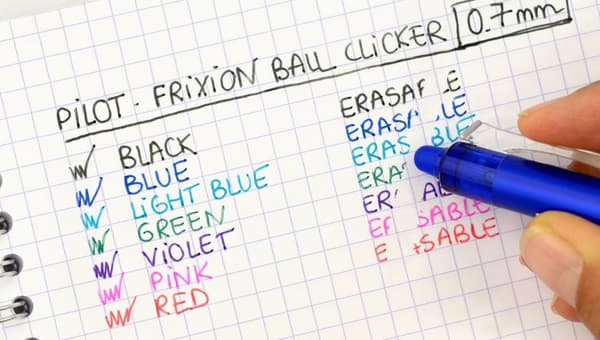 PILOT - FRIXION BALL CLICKER 0.7mm
BLACK
BLUE
LIGHT BLUE
GREEN
VIOLET
PINK
RED
ERASA E
ERAS LE
ERAS BLE
ERA
ER A
E SABLE
E SABLE